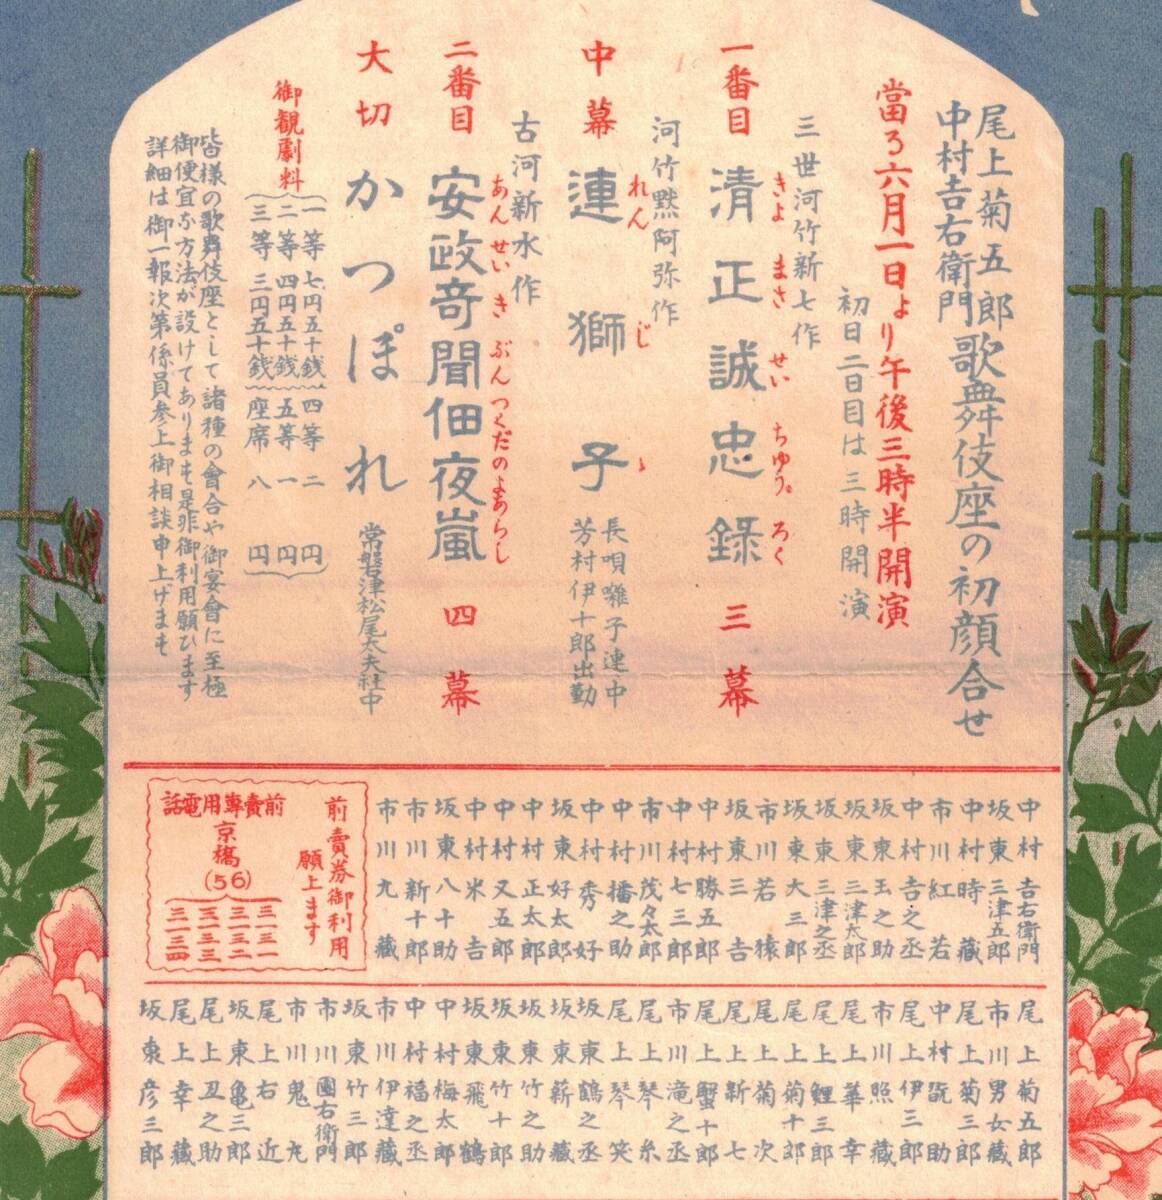 尾上菊五郎
中村吉右衛門
歌舞伎座の初顔合せ
當る六月一日より午後三時半開演
初日二日目は三時開演
三世河竹新七作
一番目 清正誠忠録 三幕
きよ まさ せい ちゆう ろく
河竹黙阿弥作
中幕 連獅子
れん じゝ
長唄囃子連中
芳村伊十郎出勤
古河新水作
二番目 安政奇聞佃夜嵐 四幕
あん せい き ぶん つくだのよあらし
大切 かつぽれ
常磐津松尾太夫社中
御観劇料
一等 七円五十銭
二等 四円五十銭
三等 三円五十銭
四等 二円
五等 一円
座席 八円
皆様の歌舞伎座として諸種の會合や御宴會に至極
御便宜な方法が設けてあります是非御利用願ひます
詳細は御一報次第係員参上御相談申上げます
中村吉右衛門
坂東三津五郎
中村時蔵
市川紅若
中村吉之丞
坂東玉之助
坂東三津太郎
坂東三津之丞
坂東大三郎
市川若猿
坂東三吉
中村勝五郎
中村七三郎
市川茂々太郎
中村播之助
中村秀好
坂東好太郎
中村正太郎
中村又五郎
中村米吉
坂東八十助
市川新十郎
市川九蔵
前賣券御利用
願上ます
前賣專用電話
京橋
(56)
三一三一
三一三二
三一三三
三一三四
尾上菊五郎
市川男女蔵
尾上菊三郎
中村翫助
尾上伊三郎
市川照蔵
尾上華幸
尾上鯉三郎
尾上菊十郎
尾上菊次
尾上新七
尾上蟹十郎
市川滝之丞
尾上琴糸
尾上琴笑
坂東鶴之丞
坂東薪蔵
坂東竹之助
坂東竹十郎
坂東飛鶴
中村梅太郎
中村福之丞
市川伊達蔵
坂東竹三郎
市川團右衛門
市川鬼丸
尾上右近
坂東亀三郎
尾上丑之助
尾上幸蔵
坂東彦三郎